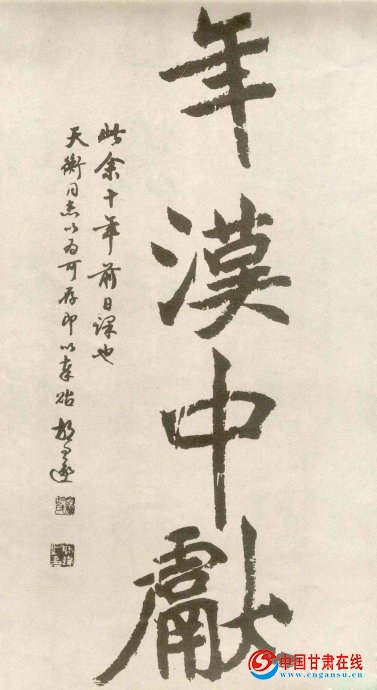 年漢中獻
此余十年前日課也
天衡同志以为可存即以奉貽
中国甘肃在线
www.cngansu.cn